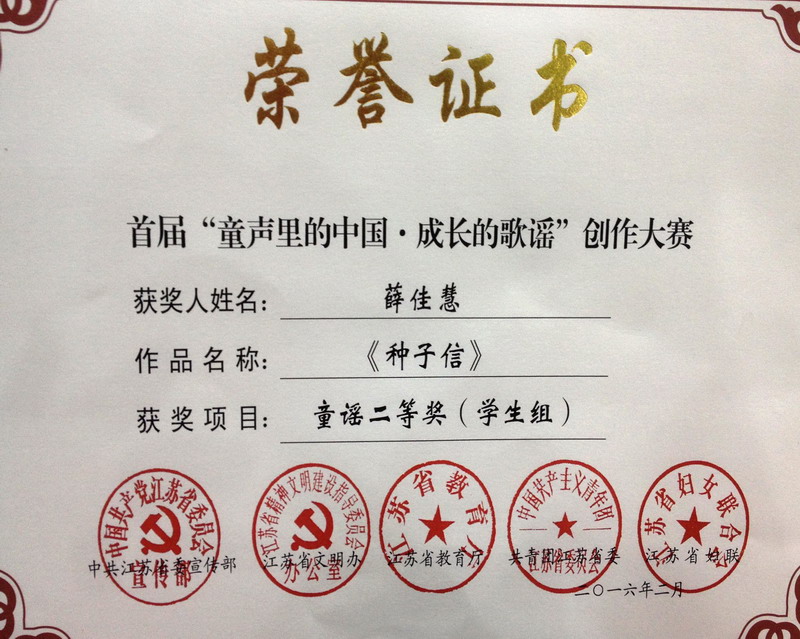 荣誉证书
首届“童声里的中国·成长的歌谣”创作大赛
获奖人姓名：薛佳慧
作品名称：《种子信》
获奖项目：童谣二等奖（学生组）
中国共产党江苏省委员会
宣传部
江苏省精神文明建设指导委员会
办公室
江苏省教育厅
中国共产主义青年团
江苏省委员会
江苏省妇女联合会
中共江苏省委宣传部 江苏省文明办 江苏省教育厅 共青团江苏省委 江苏省妇联
二〇一六年二月